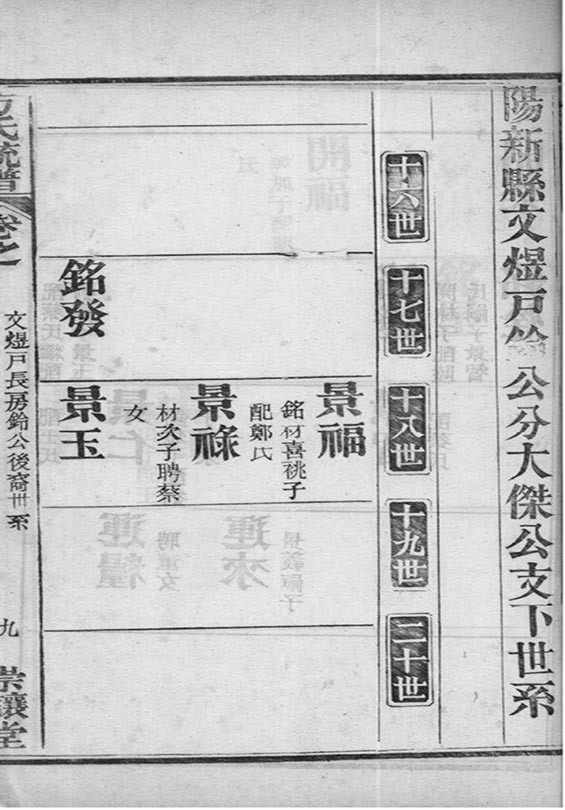 陽新縣文煜戶鈴公分大傑公支下世系
十六世
十七世
十八世
十九世
二十世
景福
銘材喜祧子
配鄭氏
景祿
材次子聘蔡
女
銘發
景玉
方氏統譜
卷之
文煜戶長房鈴公後裔丗系
九
崇讓堂